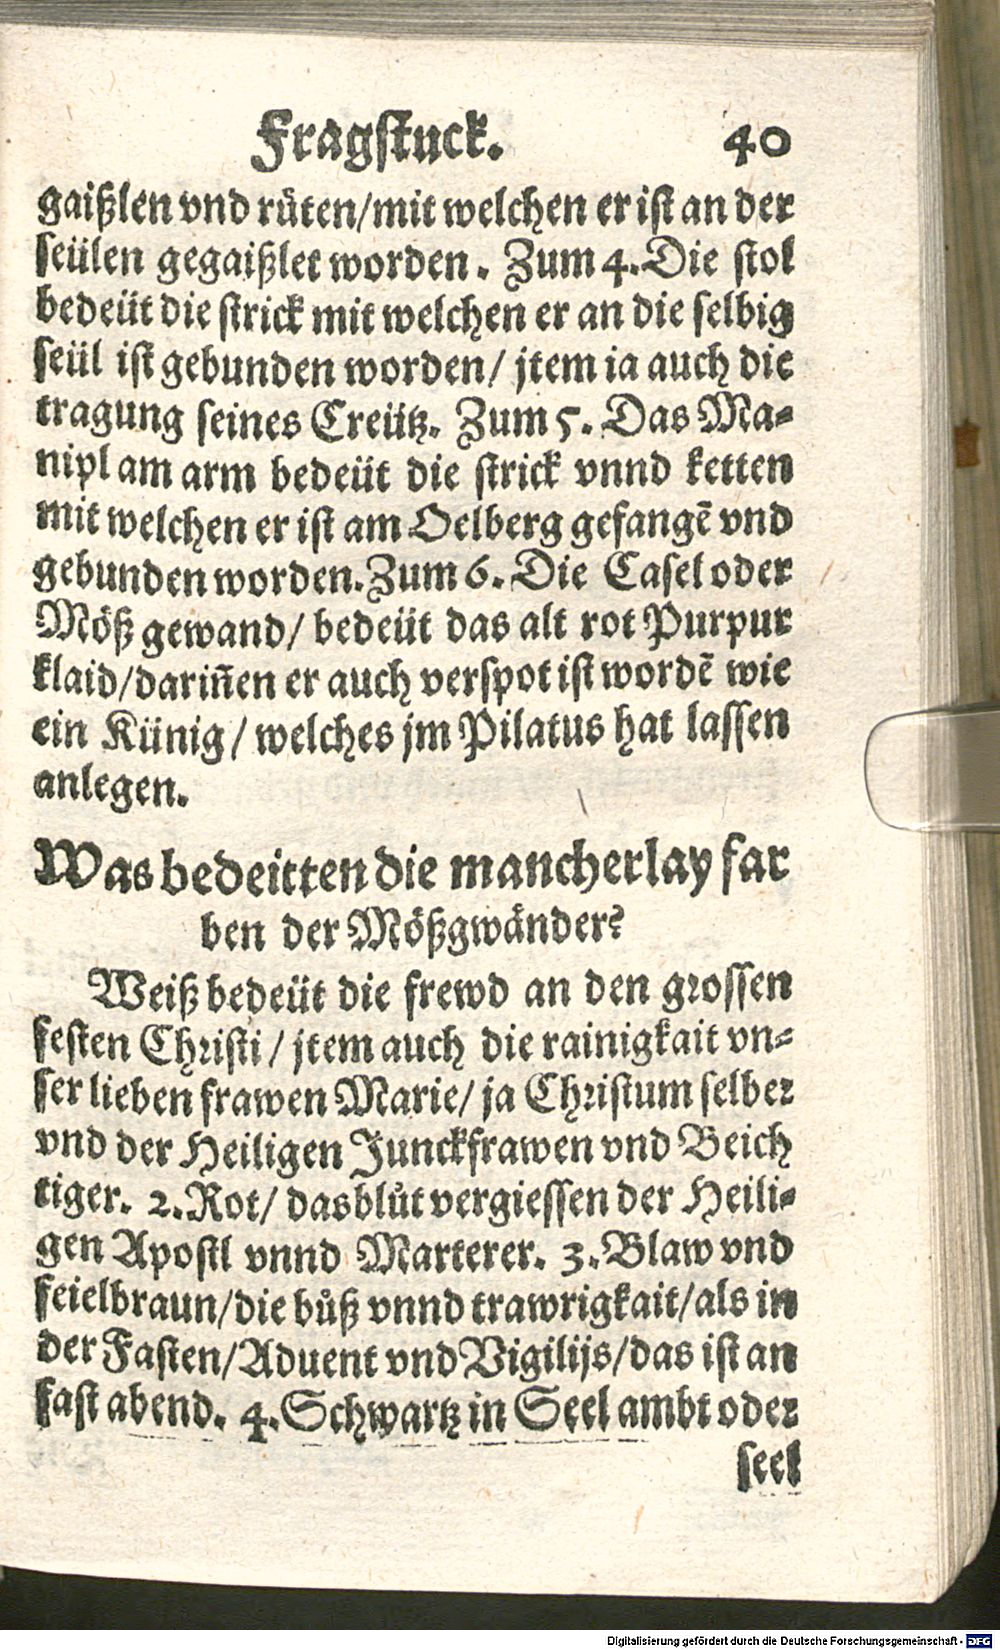 Fragstuck. 40
gaißlen vnd růten/mit welchen er ist an der
seülen gegaißlet worden. Zum 4. Die stol
bedeüt die strick mit welchen er an die selbig
seül ist gebunden worden/ jtem ia auch die
tragung seines Creütz. Zum 5. Das Ma-
nipl am arm bedeüt die strick vnnd ketten
mit welchen er ist am Oelberg gefangẽ vnd
gebunden worden. Zum 6. Die Casel oder
Möß gewand/ bedeüt das alt rot Purpur
klaid/dariñen er auch verspot ist wordẽ wie
ein Künig/ welches jm Pilatus hat lassen
anlegen.
Was bedeitten die mancherlay far
ben der Mößgwänder?
Weiß bedeüt die frewd an den grossen
festen Christi/ jtem auch die rainigkait vn-
ser lieben frawen Marie/ ja Christum selber
vnd der Heiligen Junckfrawen vnd Beich
tiger. 2. Rot/ das blůt vergiessen der Heili-
gen Apostl vnnd Marterer. 3. Blaw vnd
feielbraun/die bůß vnnd trawrigkait/als in
der Fasten/Aduent vnd Vigilijs/das ist an
fast abend. 4. Schwartz in Seel ambt oder
seel
Digitalisierung gefördert durch die Deutsche Forschungsgemeinschaft - DFG